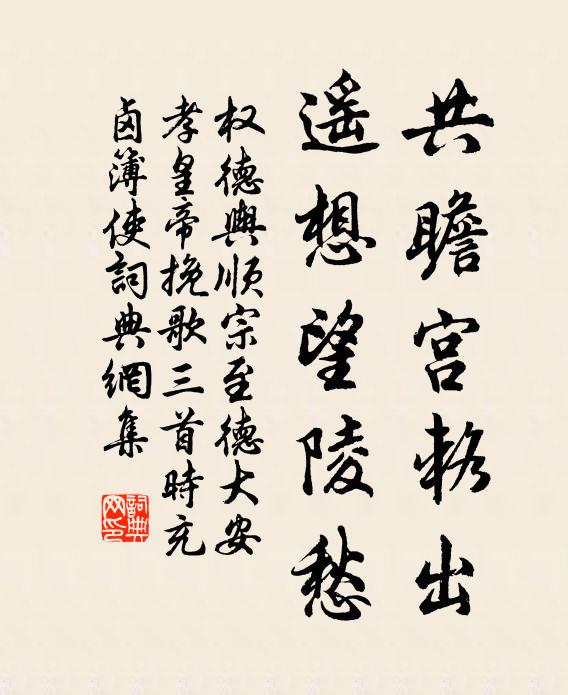 共瞻宫辂出
遥想望陵愁
权德舆顺宗至德大安
孝皇帝挽歌三首時充
卤簿使詞典網集
詞典
网印